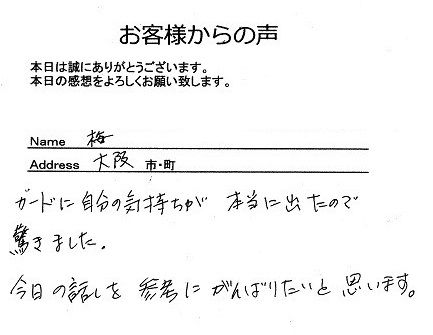 お客様からの声
本日は誠にありがとうございます。
本日の感想をよろしくお願い致します。
Name 梅
Address 大阪 市・町
ガードに自分の気持ちが 本当に出たので
驚きました。
今日の話しを 参考に がんばりたいと 思います。